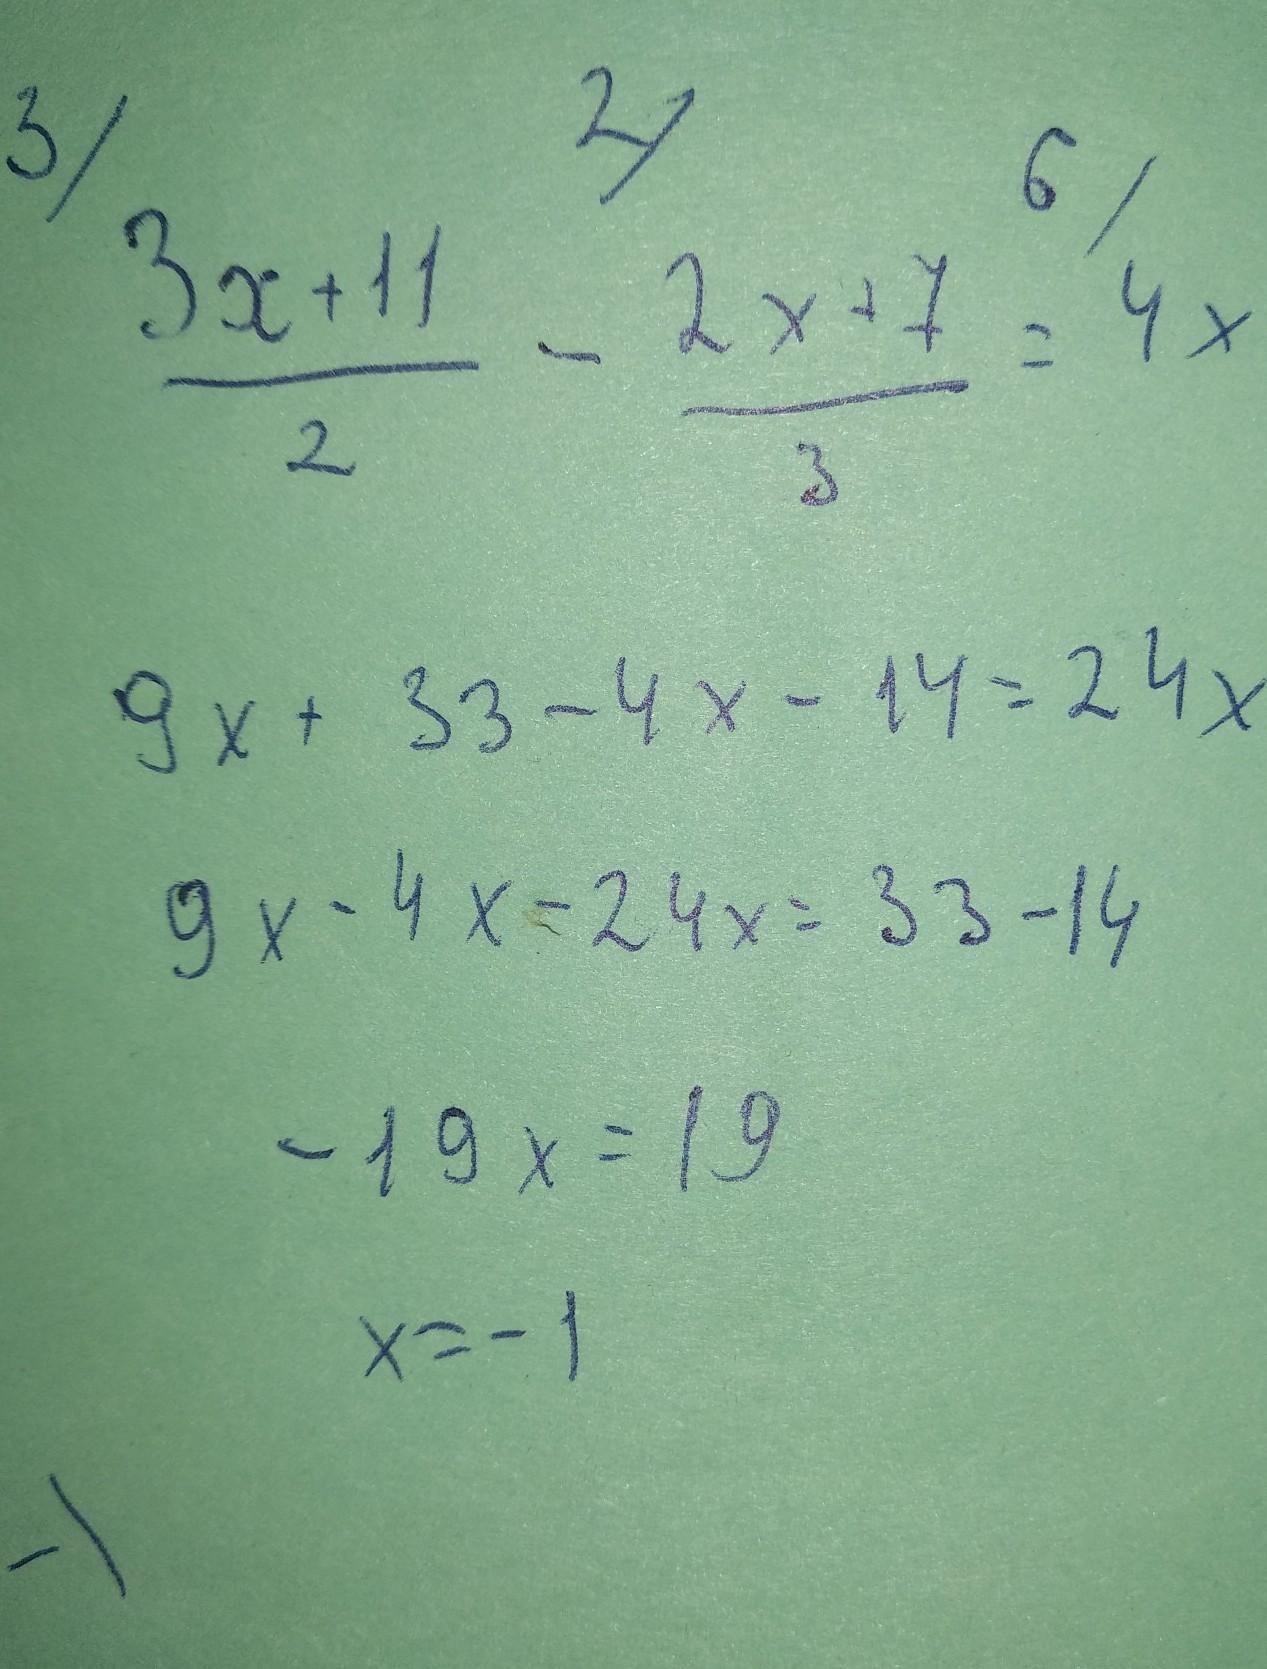 3/ 2/ 6/
3x+11 - 2x+7 = 4x
2 3
9x + 33 - 4x - 14 = 24x
9x - 4x - 24x = 33 - 14
-19x = 19
x = -1
-\